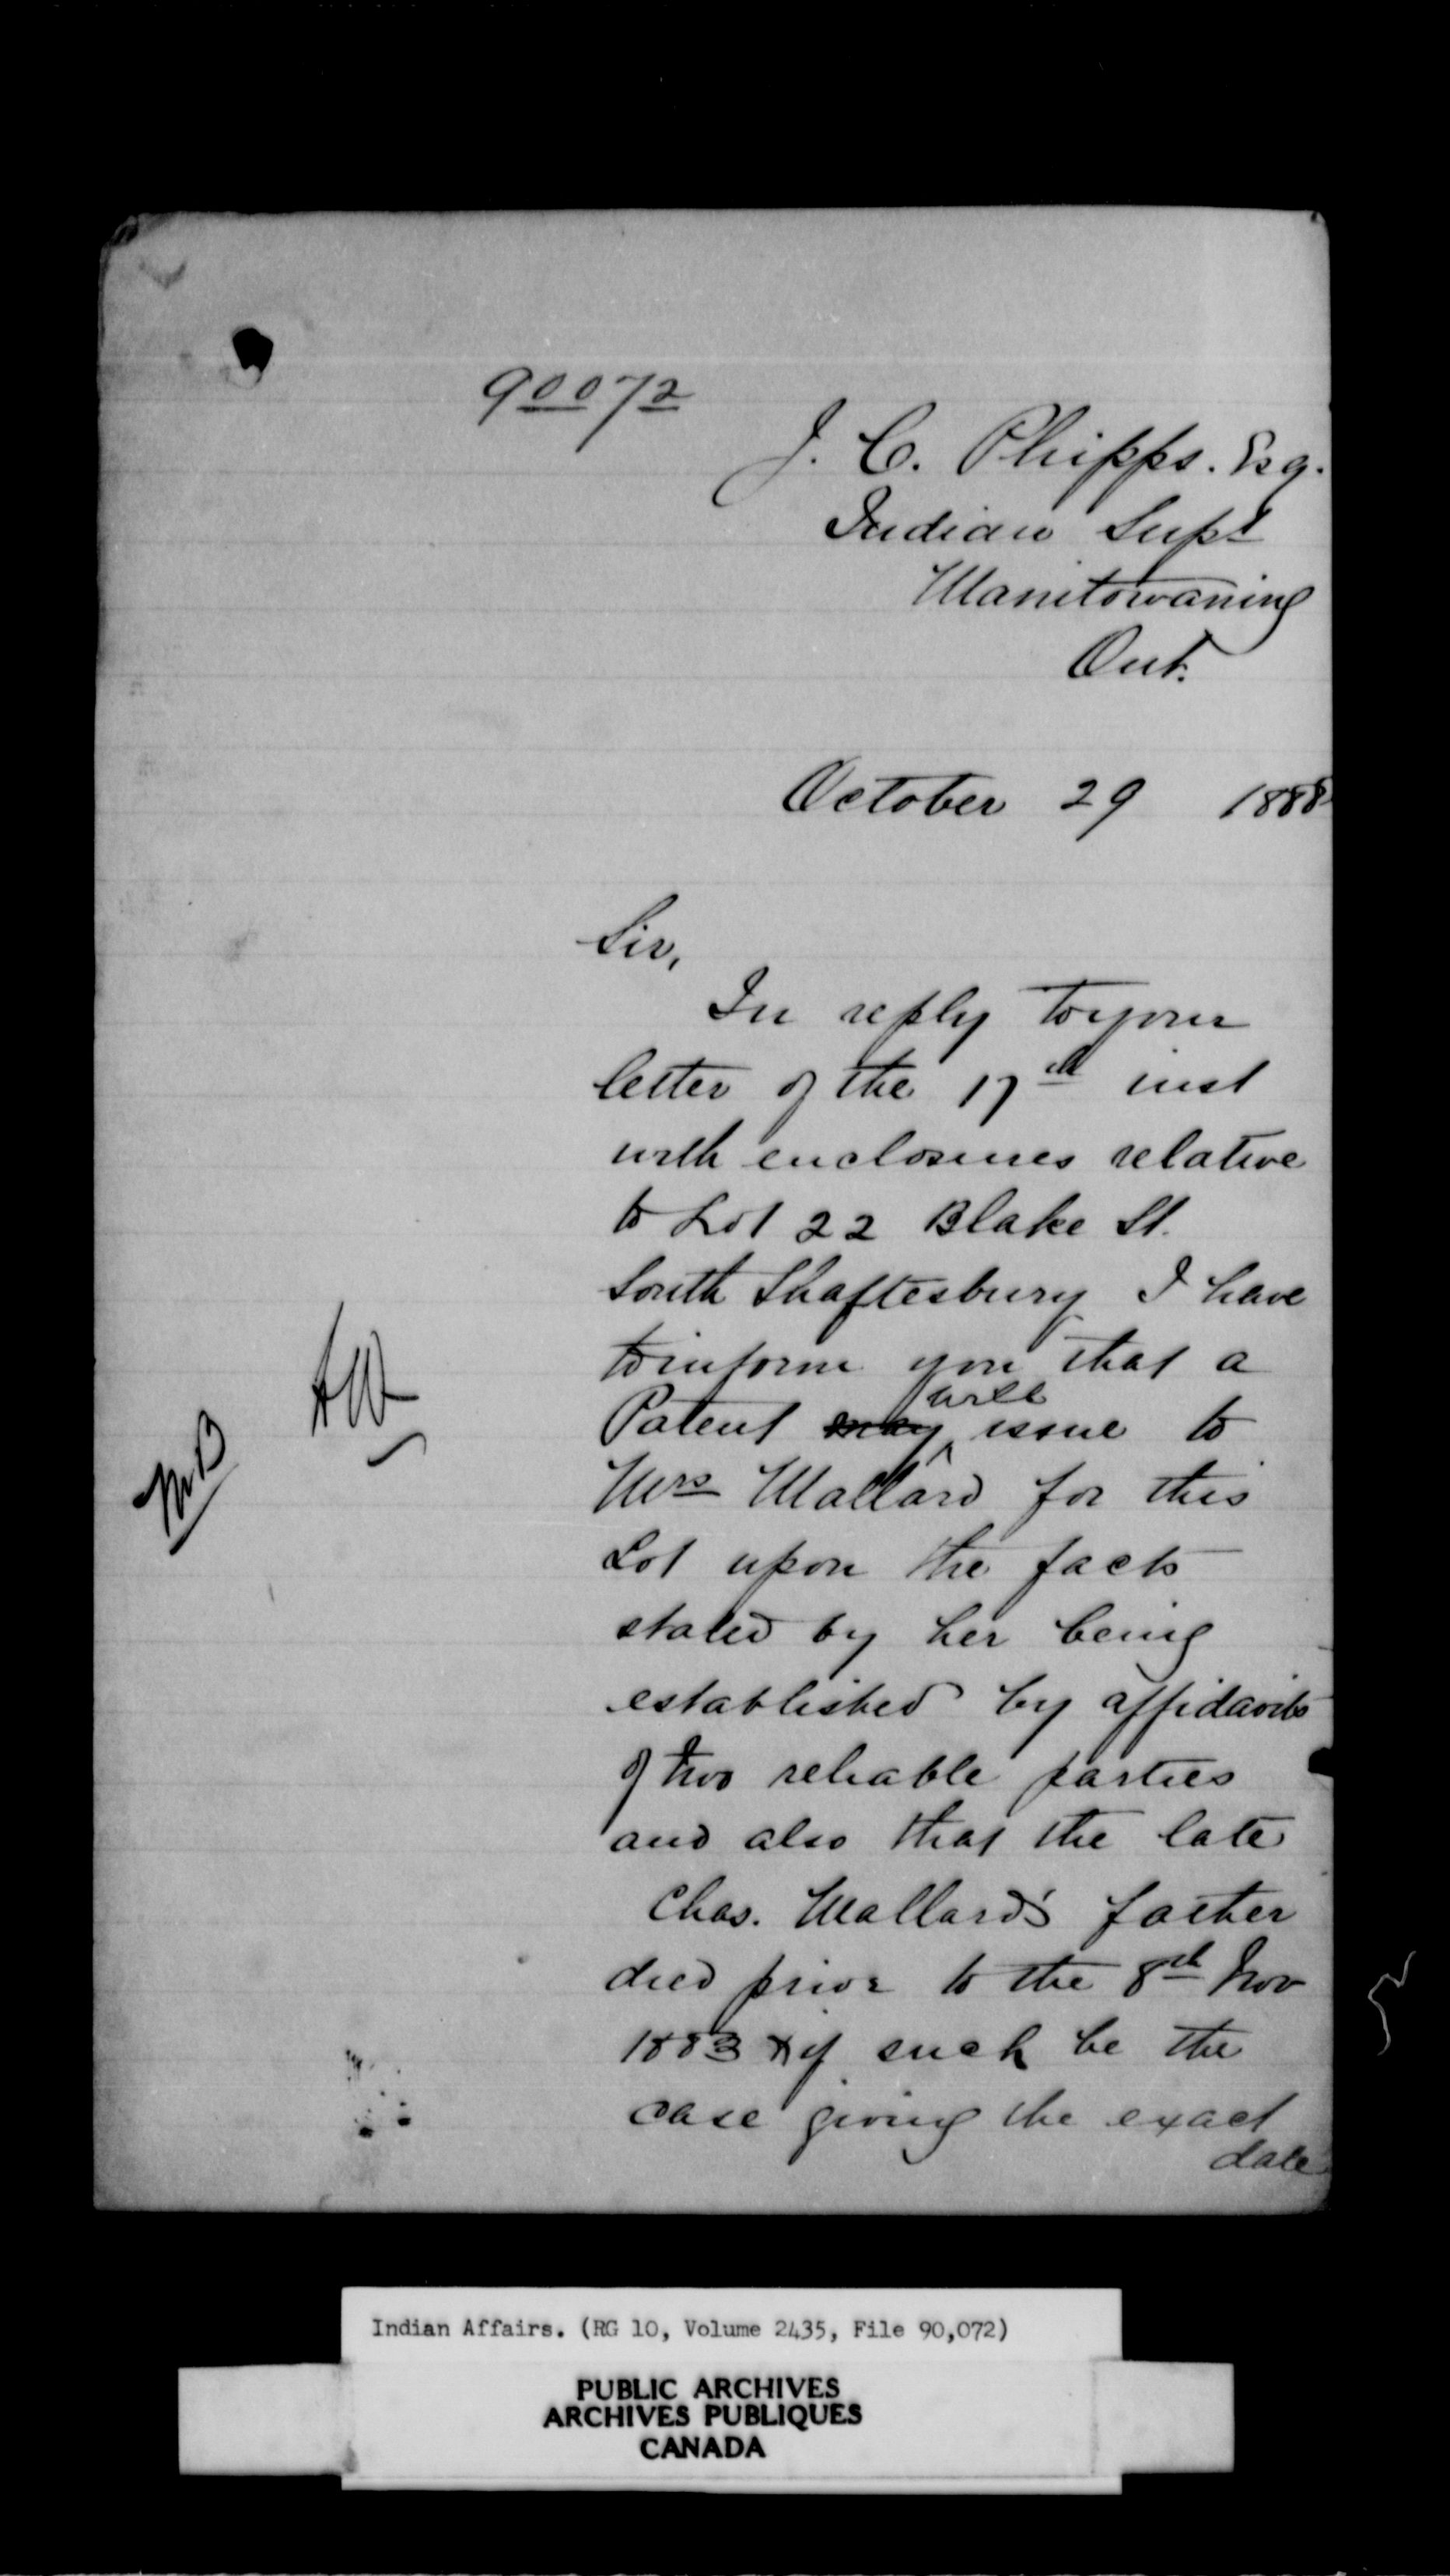 90072
J. C. Phipps. Esq.
Indian Supt
Manitowaning
Ont.
October 29 1888
Sir,
In reply to your
letter of the 17th inst
with enclosures relative
to Lot 22 Blake St.
South Shaftesbury I have
to inform you that a
Patent may will issue to
Mrs Mallard for this
Lot upon the facts
stated by her being
established by affidavits
of two reliable parties
and also that the late
Chas. Mallard's father
died prior to the 8th Nov
1883 & if such be the
case giving the exact
date
Indian Affairs. (RG 10, Volume 2435, File 90,072)
PUBLIC ARCHIVES
ARCHIVES PUBLIQUES
CANADA